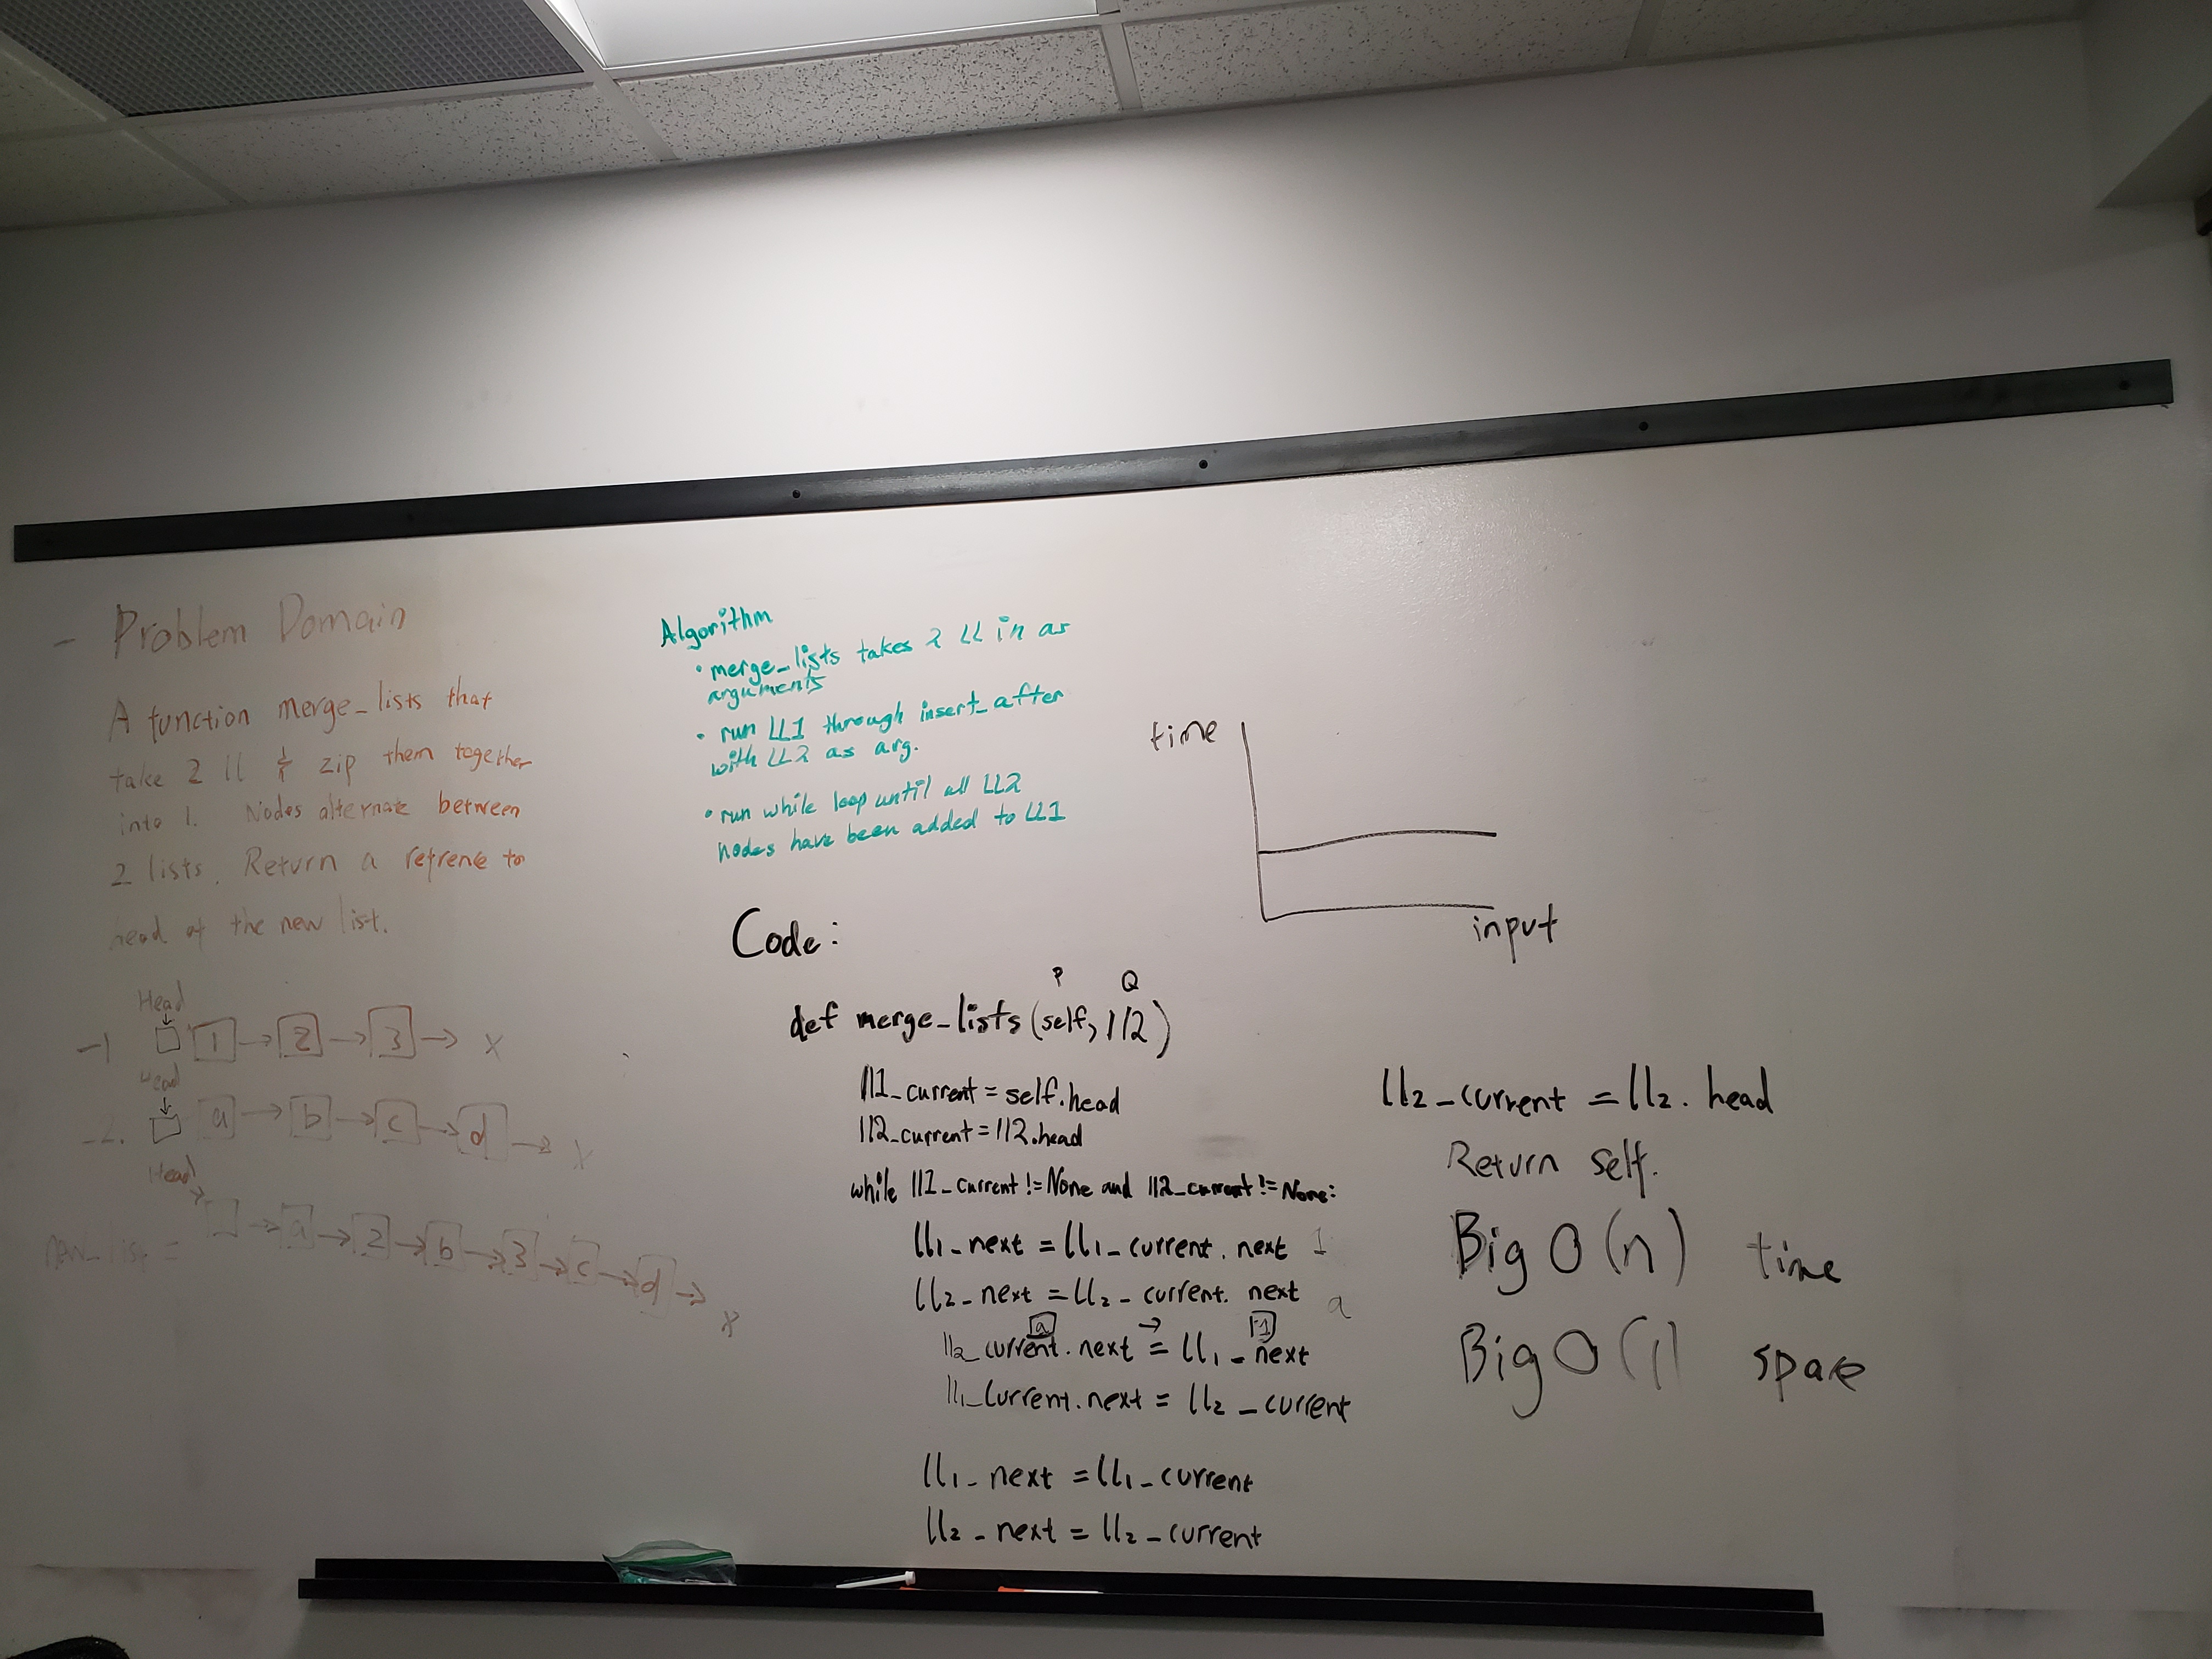 - Problem Domain
A function merge_lists that
take 2 ll & zip them together
into 1. Nodes alternate between
2 lists. Return a refrene to
head of the new list.
Head
-1 1 → 2 → 3 → X
Head
-2. a → b → c → d → X
Head
new_list = → a → 2 → b → 3 → c → d → X
Algorithm
• merge_lists takes 2 LL in as
arguments
• run LL1 through insert_after
with LL2 as arg.
• run while loop until all LL2
nodes have been added to LL1
time
input
Code:
P Q
def merge_lists(self, ll2)
ll1_current = self.head
ll2_current = ll2.head
while ll1_current != None and ll2_current != None:
ll1_next = ll1_current.next 1
ll2_next = ll2_current.next a
a → 1
ll2_current.next = ll1_next
ll1_current.next = ll2_current
ll1_next = ll1_current
ll2_next = ll2_current
ll2_current = ll2.head
Return self.
Big O(n) time
Big O(1) space